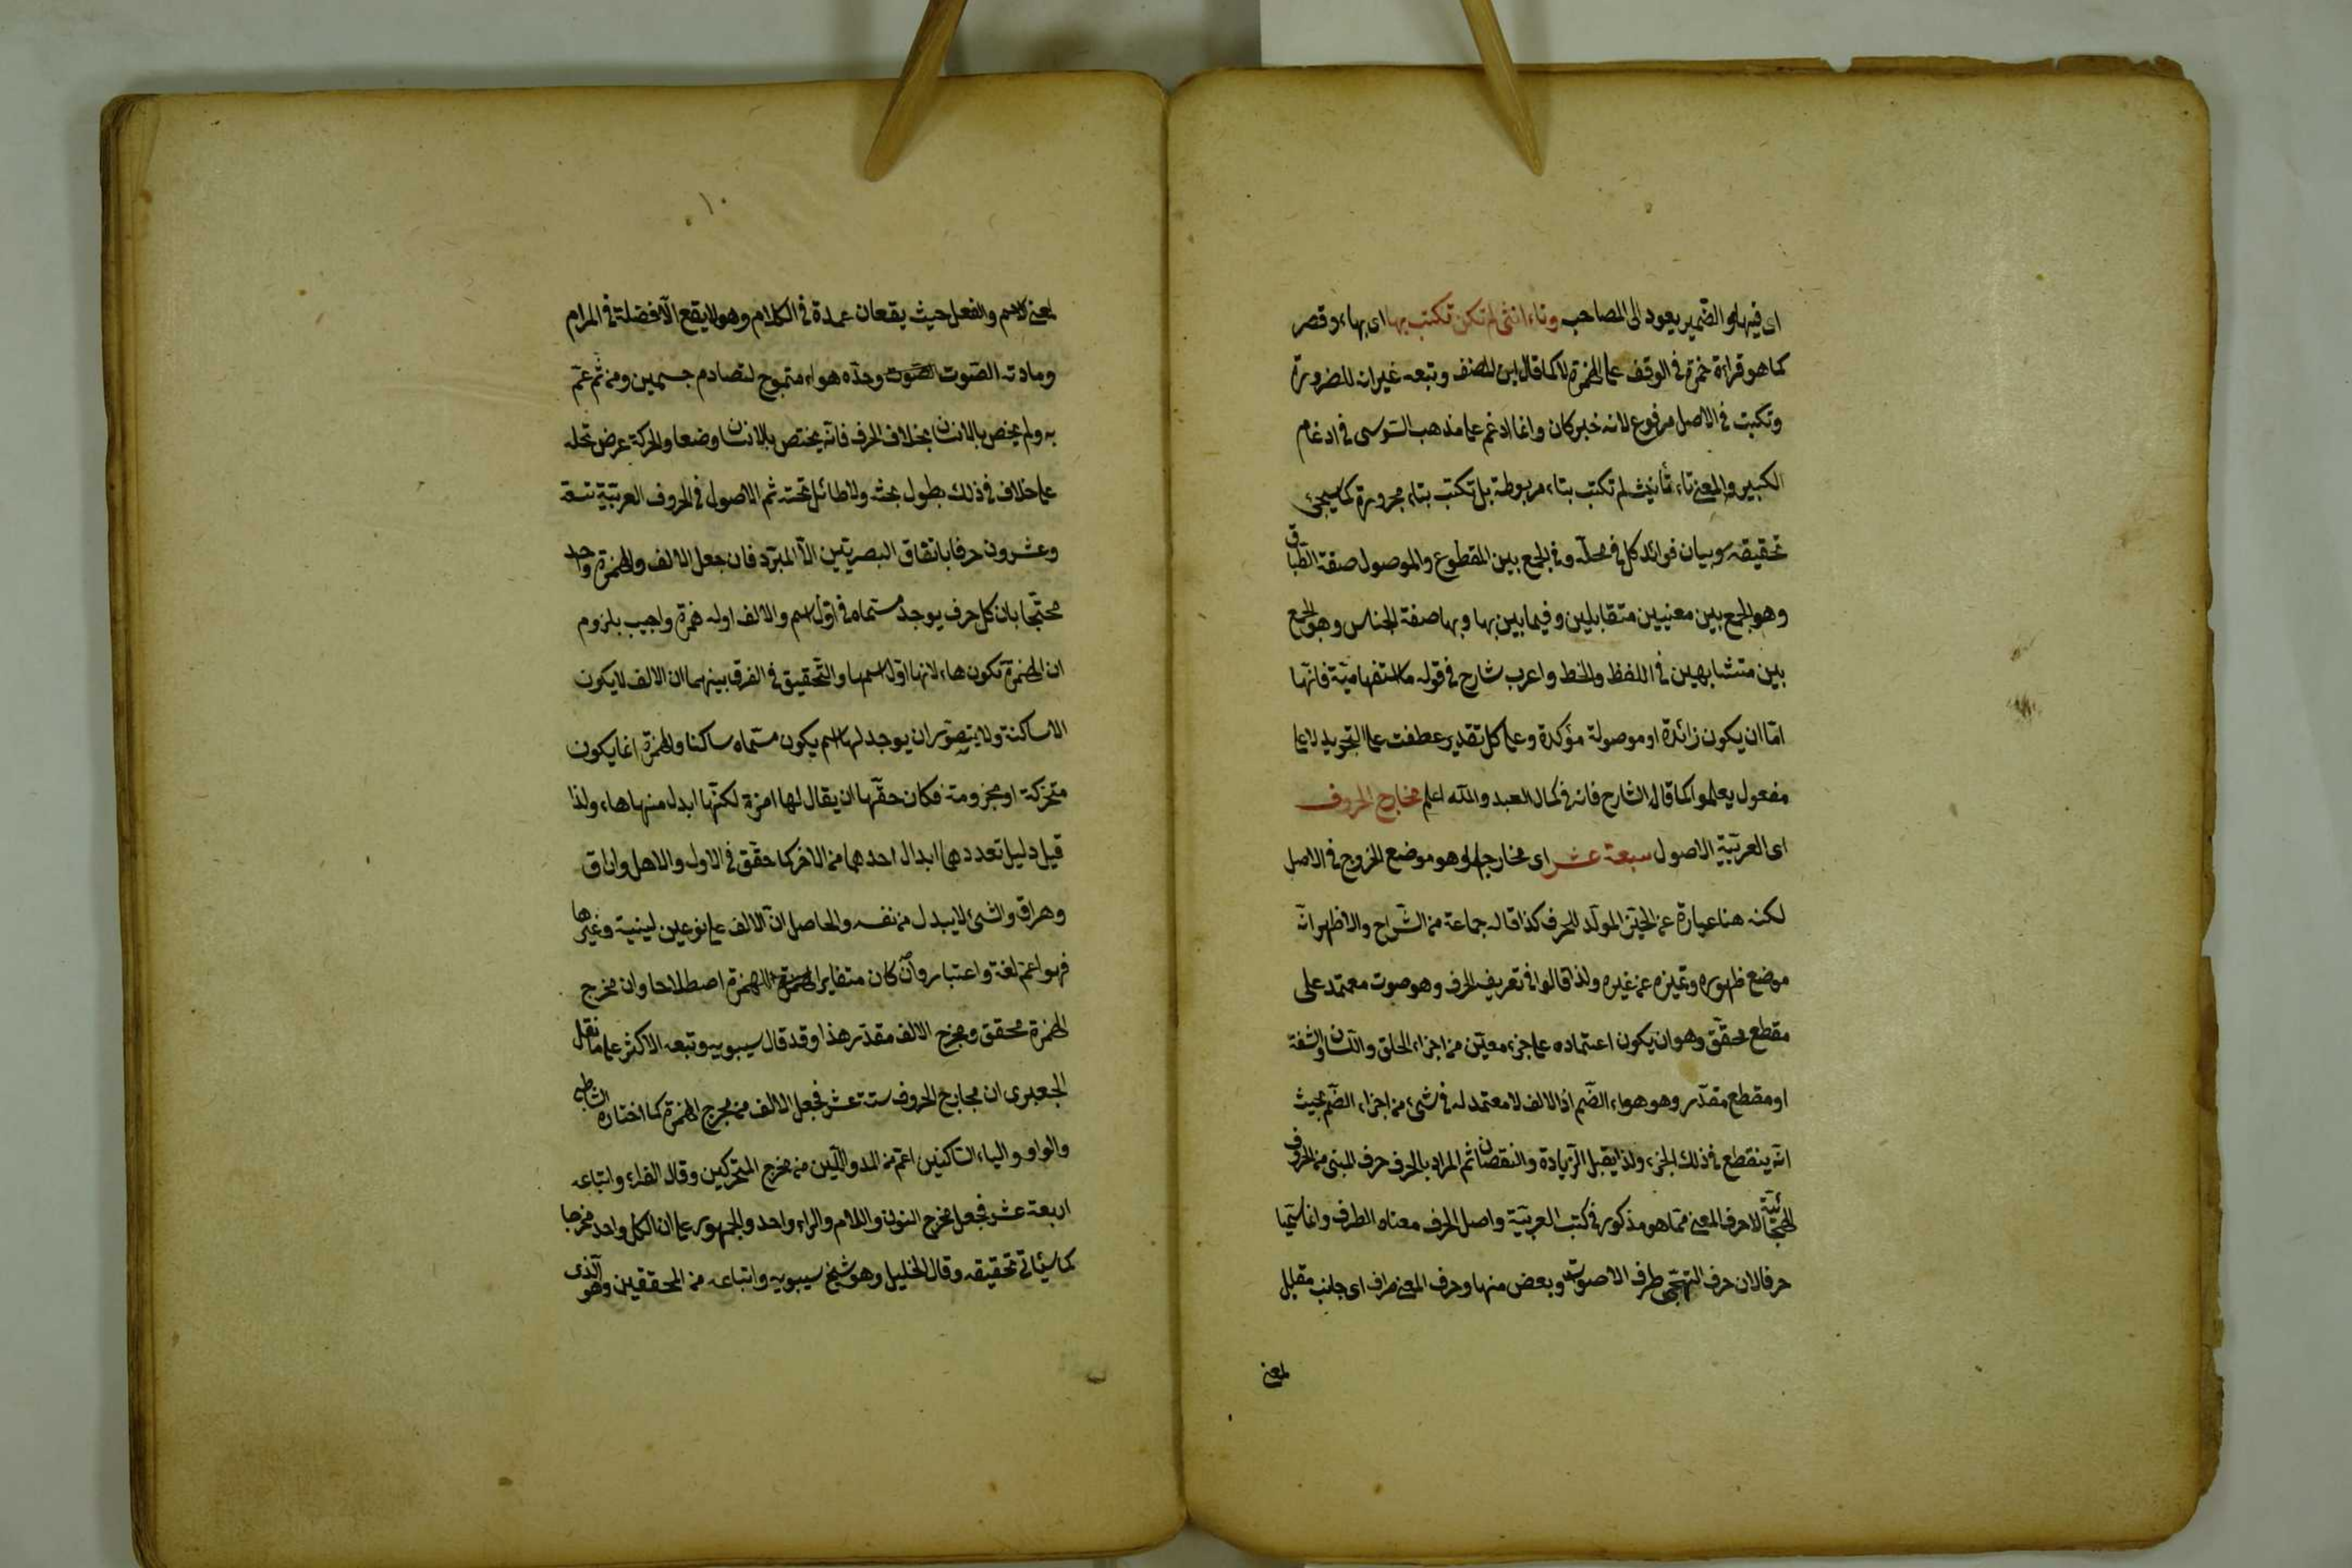 اى فيها والضمير يعود الى المصاحب وتاء انثى لم تكن تكتب بها اى بهاء وقصر
كما هو قراءة حمزة فى الوقف على الهمزة لا كما قال ابن المصنف وتبعه غيرانه للضرورة
وتكتب فى الاصل مرفوع لانه خبر كان وانما ادغم على مذهب السوسى فى ادغام
الكبير والمعنى تاء تأنيث لم تكتب بتاء مربوطة بل تكتب بتاء مجرورة كما سيجئ
تحقيقه وبيان فوائد كل فى محله وفى الجمع بين المقطوع والموصول صنعة الطباق
وهو الجمع بين معنيين متقابلين وفيما بين بها وبها صفة الجناس وهو الجمع
بين متشابهين فى اللفظ والخط واعرب شارح فى قوله ما استفهامية فانها
اما ان يكون زائدة او موصولة مؤكدة وعلى كل تقدير عطفت على التجويد لا على
مفعول يعلموا كما قال الشارح فانه فى كمال العبد والله اعلم مخارج الحروف
اى العربية الاصول سبعة عشر اى مخارجها وهو موضع الخروج فى الاصل
لكنه هنا عبارة عن الحيز المولد للحرف كذا قاله جماعة من الشراح والاظهر انه
موضع ظهوره وتميزه عن غيره ولذا قالوا فى تعريف الحرف وهو صوت معتمد على
مقطع محقق وهو ان يكون اعتماده على جزء معين من اجزاء الحلق واللسان والشفة
او مقطع مقدر وهو هواء الفم اذ الالف لا معتمد له فى شئ من اجزاء الفم بحيث
انه ينقطع فى ذلك الجزء ولذا يقبل الزيادة والنقصان ثم المراد بالحرف حرف المبنى من الحروف
الهجائية لا حرف المعنى مما هو مذكور فى كتب العربية واصل الحرف معناه الطرف وانما سميا
حرفا لان حرف التهجى طرف الاصوات وبعض منها وحرف المعنى طرف اى جانب مقابل
لمعنى
١٠
لمعنى الاسم والفعل حيث يقعان عمدة فى الكلام وهو لا يقع الا فضلة فى المرام
ومادته الصوت الصوت وحده هواء متموج لتصادم جسمين ومن ثم عم
به ولم يختص بالانسان بخلاف الحرف فانه يختص بالانسان وضعا والحركة عرض تحله
على خلاف فى ذلك يطول بحثه ولا طائل تحته ثم الاصول فى الحروف العربية تسعة
وعشرون حرفا باتفاق البصريين الا المبرد فان جعل الالف والهمزة واحد
محتجا بان كل حرف يوجد مسماه فى اول اسم والالف اوله همزة واجيب بلزوم
ان الهمزة تكون هاء لانها اول اسمها والتحقيق فى الفرق بينهما ان الالف لا يكون
الا ساكنة ولا يتصور ان يوجد لها اسم يكون مسماه ساكنا والهمزة انما يكون
متحركة او مجزومة فكان حقها ان يقال لها امزة لكنها ابدل منها هاء ولذا
قيل دليل تعددهما ابدال احدهما من الاخر كما حقق فى الاول والاهل واراق
وهراق والشئ لا يبدل من نفسه والحاصل ان الالف على نوعين لينية وغيرها
فهو اعم لغة واعتبار وان كان متغايرا الهمزة اصطلاحا وان مخرج
الهمزة محقق ومخرج الالف مقدر هذا وقد قال سيبويه وتبعه الاكثر على ما نقل
الجعبرى ان مخارج الحروف ستة عشر فجعل الالف من مخرج الهمزة كما اختاره الشاطبى
والواو والياء الساكنين اعم من المد واللين من مخرج المتحركين وقال الفراء واتباعه
اربعة عشر فجعل مخرج النون واللام والراء واحد والجمهور على ان الكل واحد مخرجا
كما سيأتى تحقيقه وقال الخليل وهو شيخ سيبويه واتباعه من المحققين وهو الذى